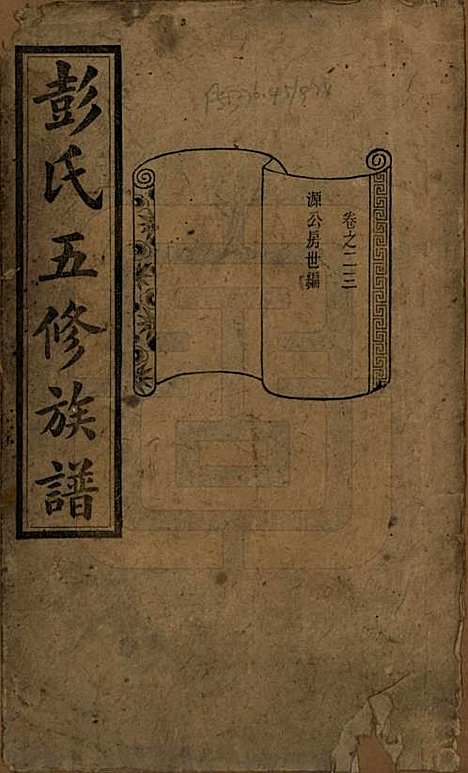 彭氏五修族譜
卷之二三
源公房世編